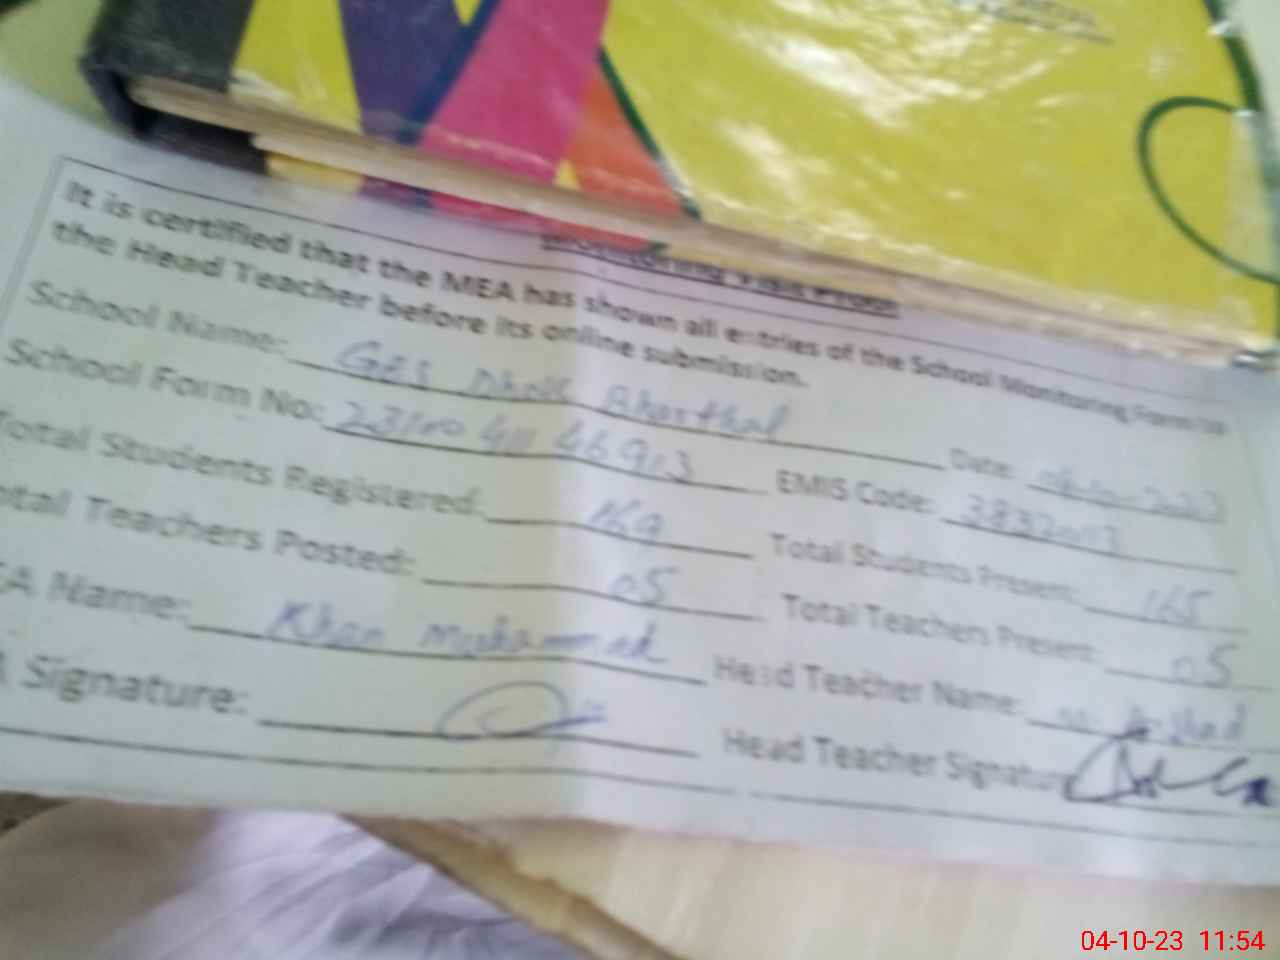 Monitoring Visit Proof
It is certified that the MEA has shown all entries of the School Monitoring Form to
the Head Teacher before its online submission.
School Name: GES Dhok Bharthal Date:
School Form No: EMIS Code:
Total Students Registered: 169 Total Students Present: 165
otal Teachers Posted: 05 Total Teachers Present: 05
EA Name: Khan Muhammad Head Teacher Name: Arshad
A Signature: Head Teacher Signature
04-10-23 11:54